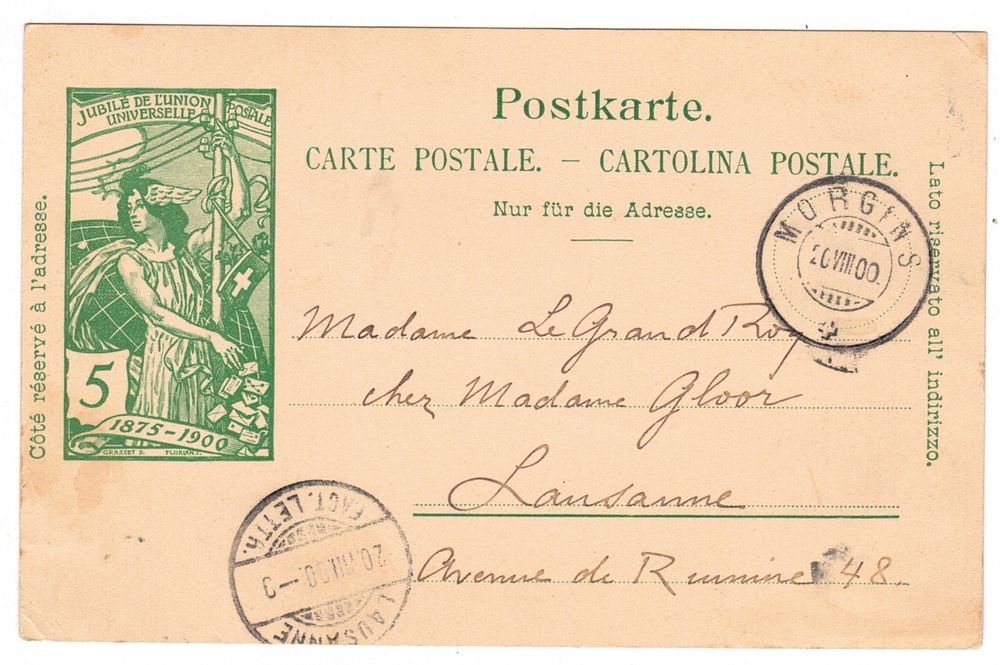 JUBILÉ DE L'UNION
POSTALE
UNIVERSELLE
5
1875-1900
GRASSET D. FLORIAN S.
Côté réservé à l'adresse.
Postkarte.
CARTE POSTALE. — CARTOLINA POSTALE.
Nur für die Adresse.
Lato riservato all' indirizzo.
MORGINS
20 VIII 00.
Madame Le Grand Roy
chez Madame Gloor
Lausanne
Avenue de Rumine 48.
FACT. LETTR.
20.VIII.00.-3
LAUSANNE